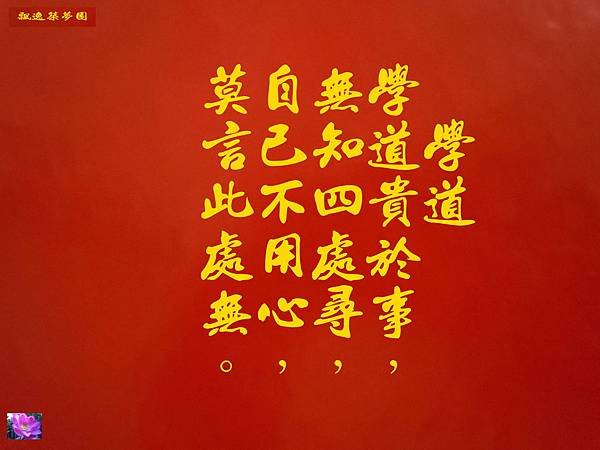 飄逸築夢園
學道
學道貴於事，
無知四處尋，
自己不用心，
莫言此處無。